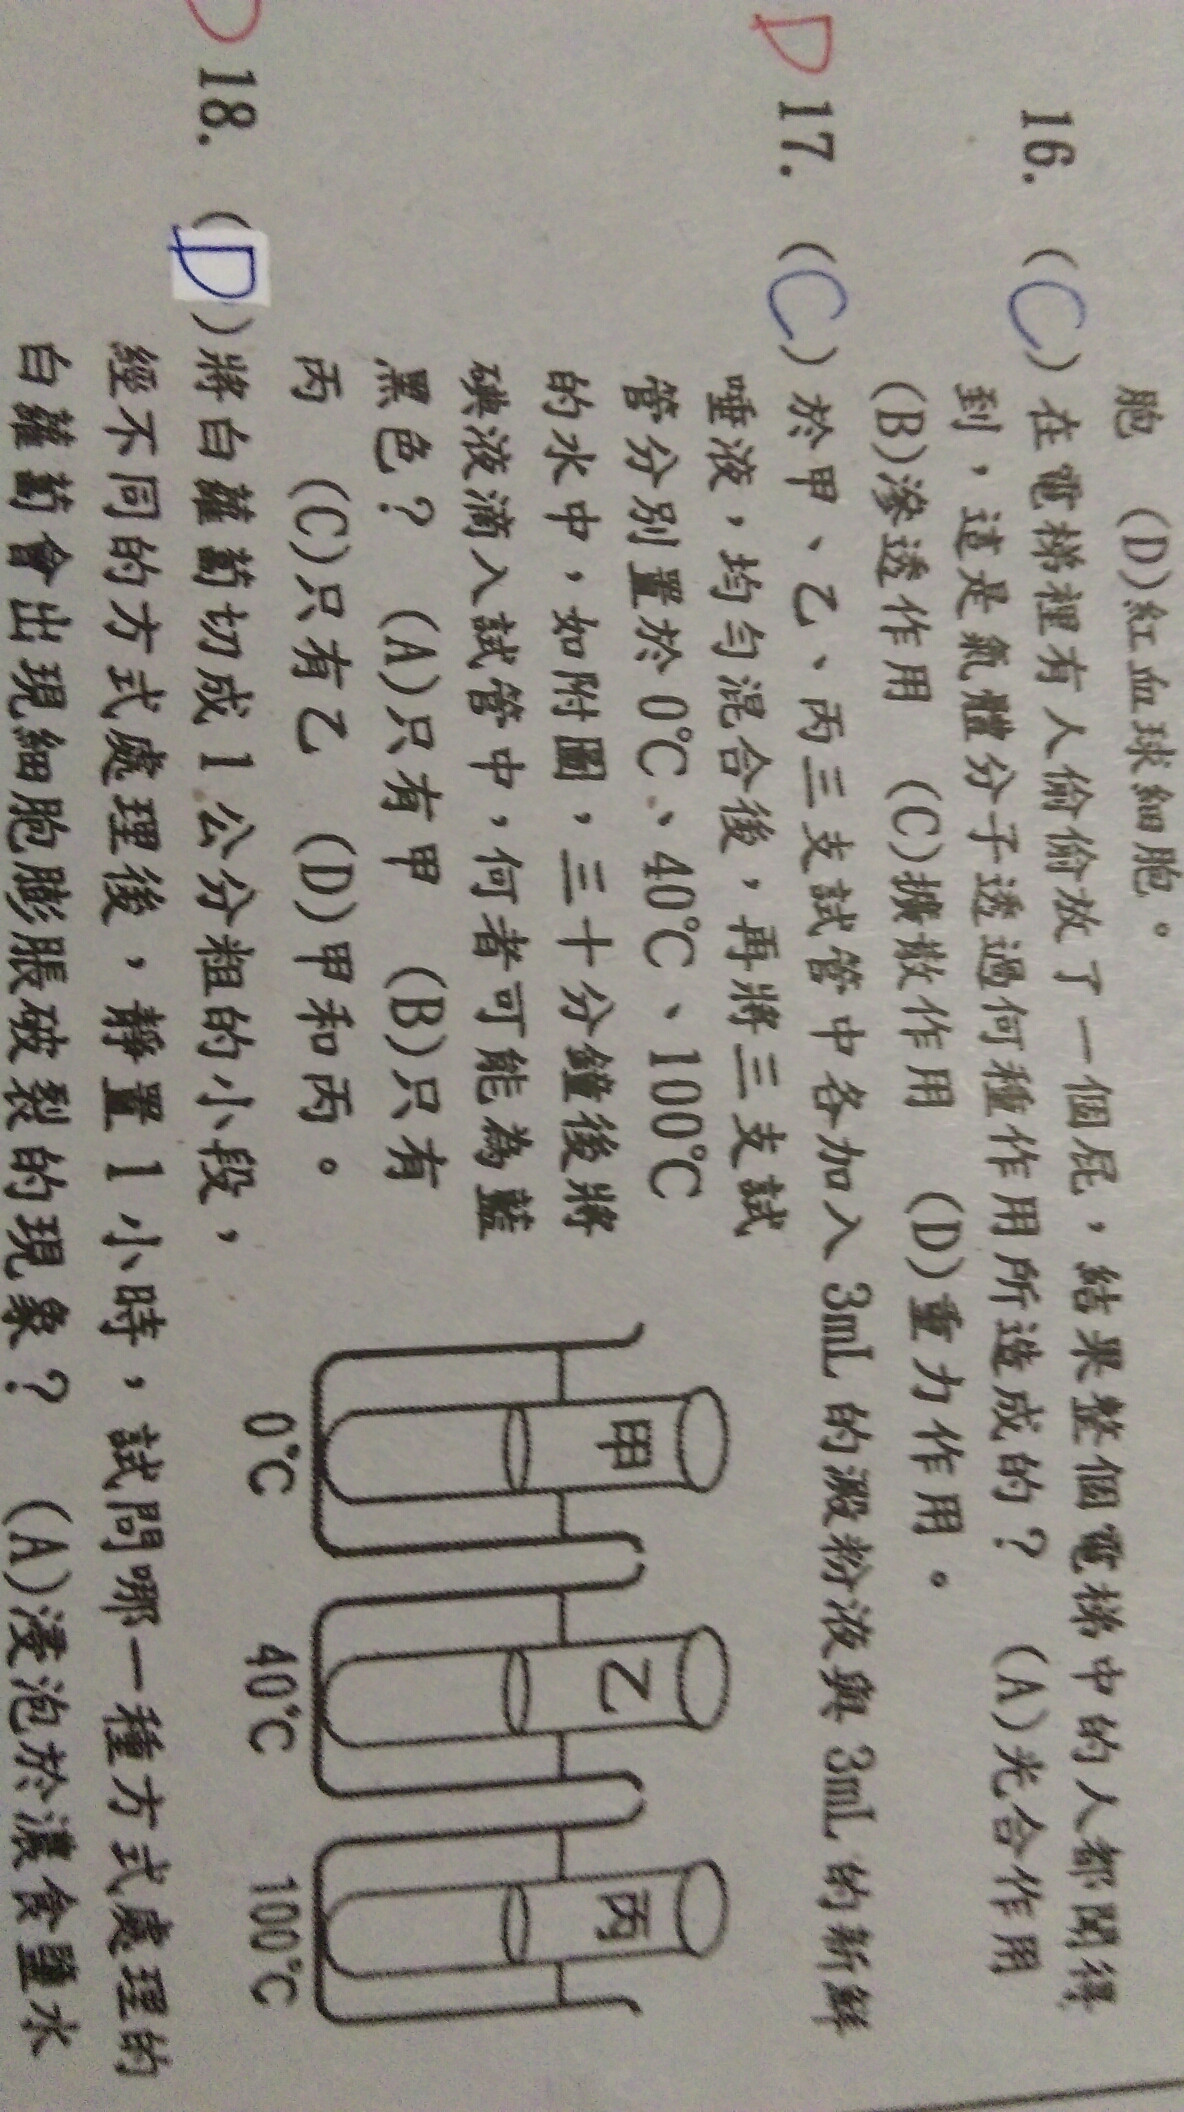 胞　(D)紅血球細胞。
16. (C)在電梯裡有人偷偷放了一個屁，結果整個電梯中的人都聞得
到，這是氣體分子透過何種作用所造成的？　(A)光合作用
(B)滲透作用　(C)擴散作用　(D)重力作用。
D 17. (C)於甲、乙、丙三支試管中各加入 3mL 的澱粉液與 3mL 的新鮮
唾液，均勻混合後，再將三支試
管分別置於 0℃、40℃、100℃
的水中，如附圖，三十分鐘後將
碘液滴入試管中，何者可能為藍
黑色？　(A)只有甲　(B)只有
丙　(C)只有乙　(D)甲和丙。
甲　乙　丙
0℃　40℃　100℃
D 18. (D)將白蘿蔔切成 1 公分粗的小段，
經不同的方式處理後，靜置 1 小時，試問哪一種方式處理的
白蘿蔔會出現細胞膨脹破裂的現象？　(A)浸泡於濃食鹽水